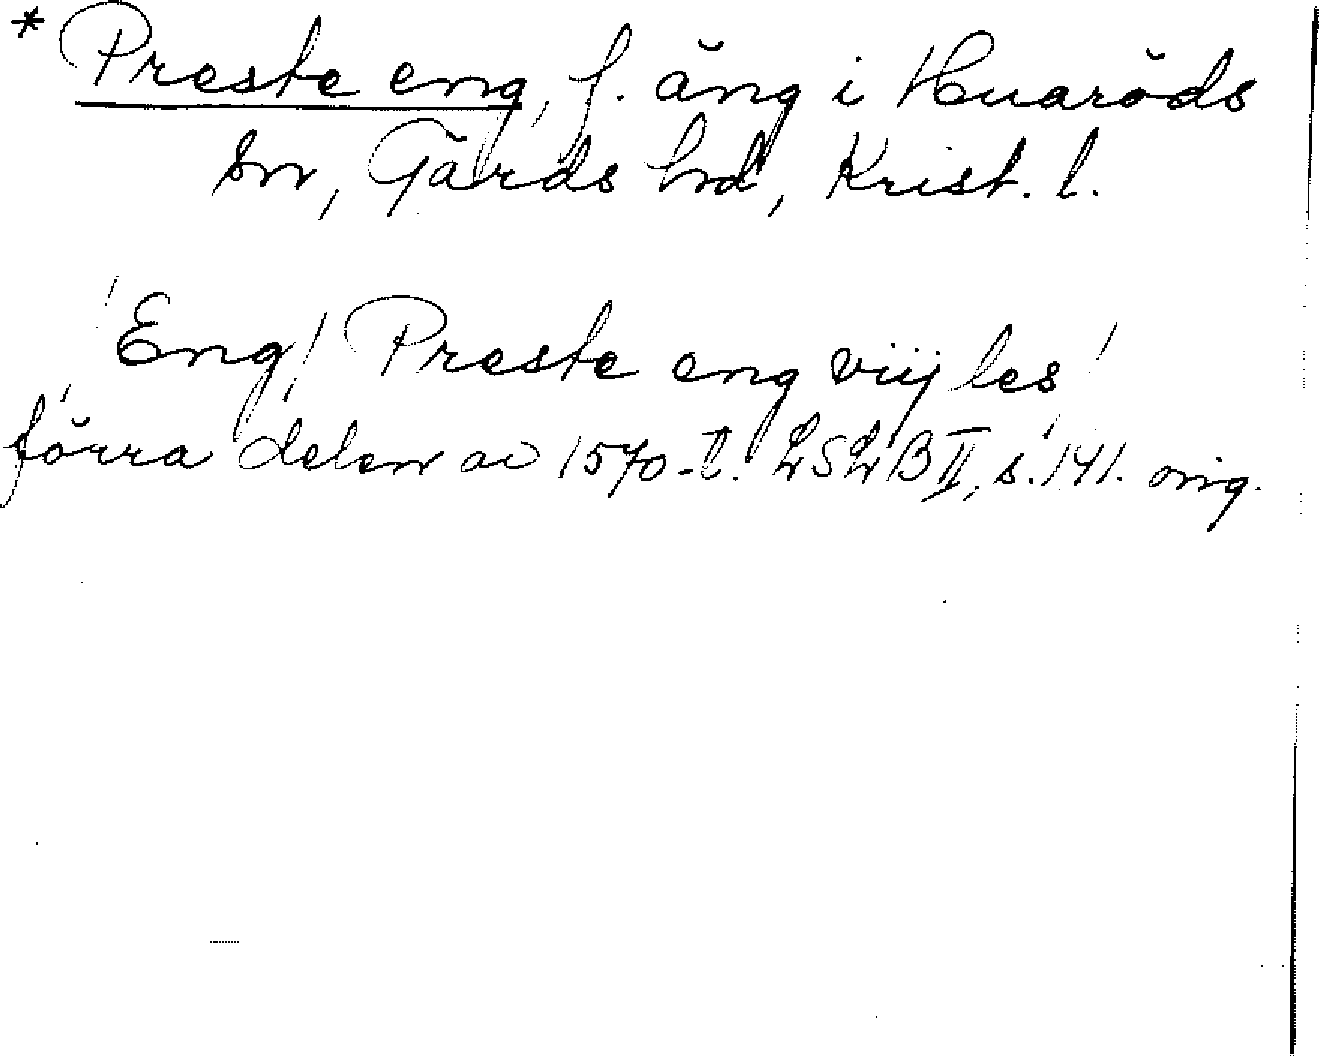 * Preste eng, f. äng i Huaröds
sn, Gärds hd, Krist. l.
'Eng' 'Preste eng viij les'
förra delen av 1570-t. LSLB II, s. 141. orig.